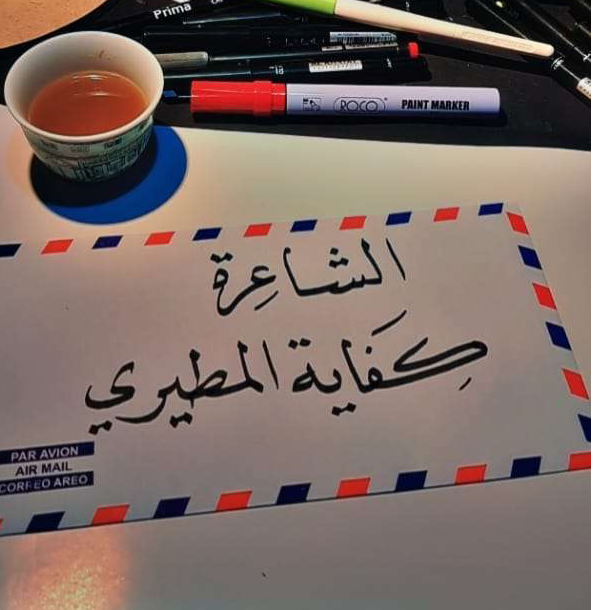 Prima
ROCO PAINT MARKER
الشاعِرة
كِفَاية المطيري
PAR AVION
AIR MAIL
CORREO AREO